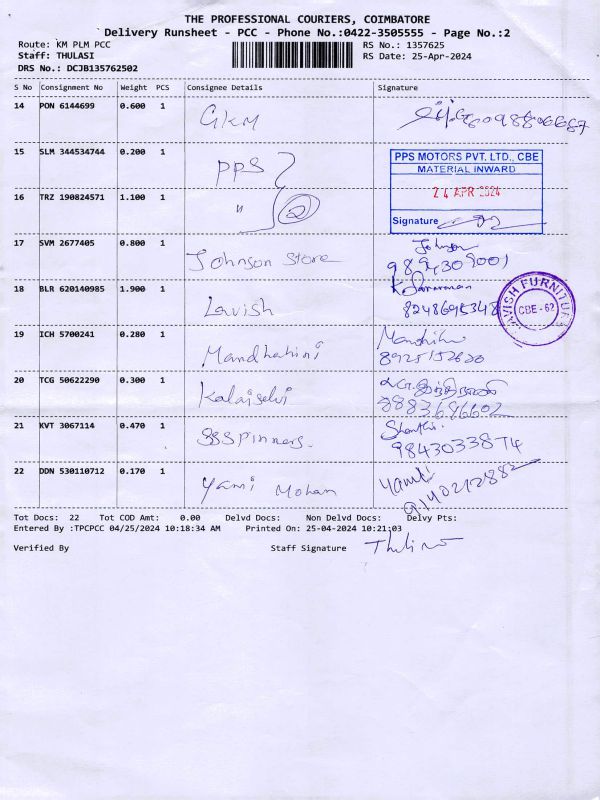 THE PROFESSIONAL COURIERS, COIMBATORE
Delivery Runsheet - PCC - Phone No.:0422-3505555 - Page No.:2
Route: KM PLM PCC
RS No.: 1357625
Staff: THULASI
RS Date: 25-Apr-2024
DRS No.: DCJB135762502
S No Consignment No Weight PCS Consignee Details Signature
14 PON 6144699 0.600 1 GKM
15 SLM 344534744 0.200 1 PPS
PPS MOTORS PVT. LTD., CBE
MATERIAL INWARD
24 APR 2024
Signature
16 TRZ 190824571 1.100 1 " 2
17 SVM 2677405 0.800 1 Johnson Store Johnson
9894309001
18 BLR 620140985 1.900 1 Lavish
8248695348
LAVISH FURNITURE
CBE - 62
19 ICH 5700241 0.280 1 Mandhahini
8925152620
20 TCG 50622290 0.300 1 Kalaiselvi
9883686602
21 KVT 3067114 0.470 1 SSSpinners. Shanthi.
9843033874
22 DDN 530110712 0.170 1 Yami Mohan Yami
9140212882
Tot Docs: 22 Tot COD Amt: 0.00 Delvd Docs: Non Delvd Docs: Delvy Pts:
Entered By :TPCPCC 04/25/2024 10:18:34 AM Printed On: 25-04-2024 10:21:03
Verified By Staff Signature